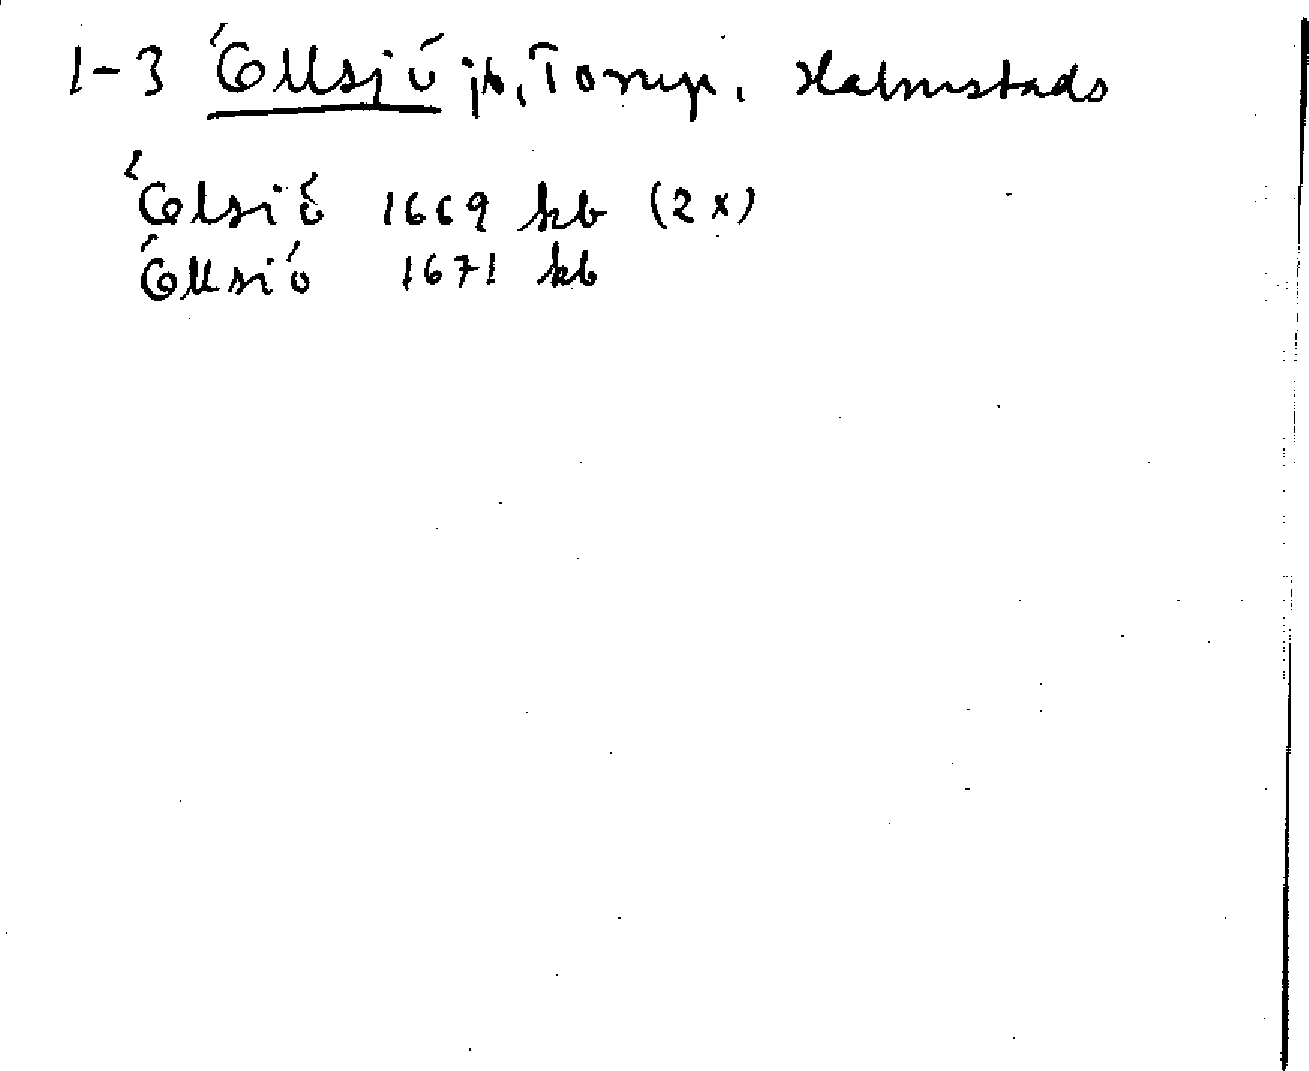 1-3 Öllsjö jb, Torup, Halmstads
Ölsiö 1669 kb (2x)
Öllsiö 1671 kb